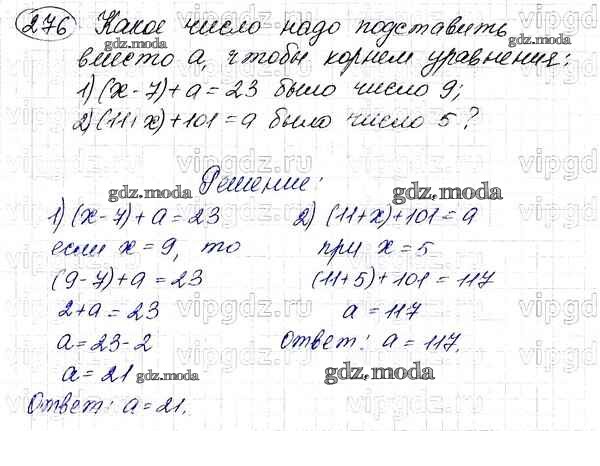 276 Какое число надо подставить
вместо а, чтобы корнем уравнения:
1) (x-7)+a=23 было число 9;
2) (11+x)+101=a было число 5?
Решение:
1) (x-7)+a=23
если x=9, то
(9-7)+a=23
2+a=23
a=23-2
a=21
Ответ: a=21.
2) (11+x)+101=a
при x=5
(11+5)+101=117
a=117
Ответ: a=117.
gdz.moda
gdz.moda
gdz.moda
gdz.moda
gdz.moda
gdz.moda
vipgdz.ru